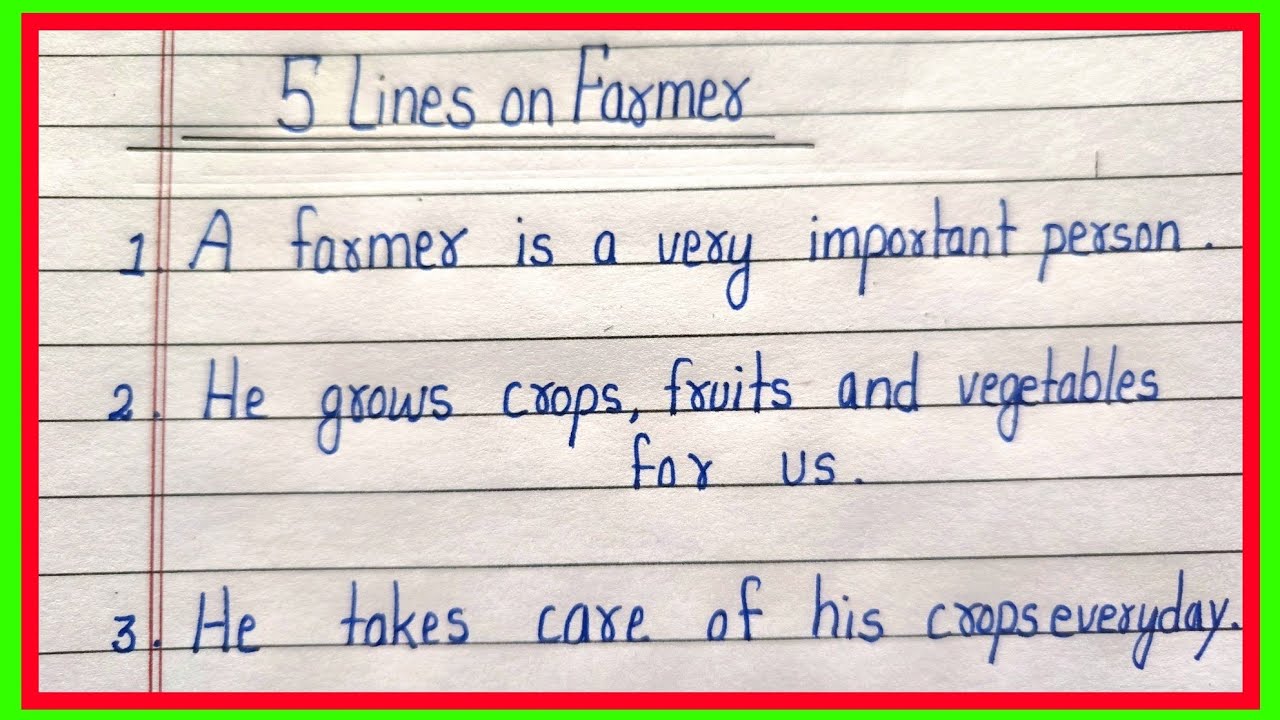 5 Lines on Farmer
1. A farmer is a very important person.
2. He grows crops, fruits and vegetables
for us.
3. He takes care of his crops everyday.